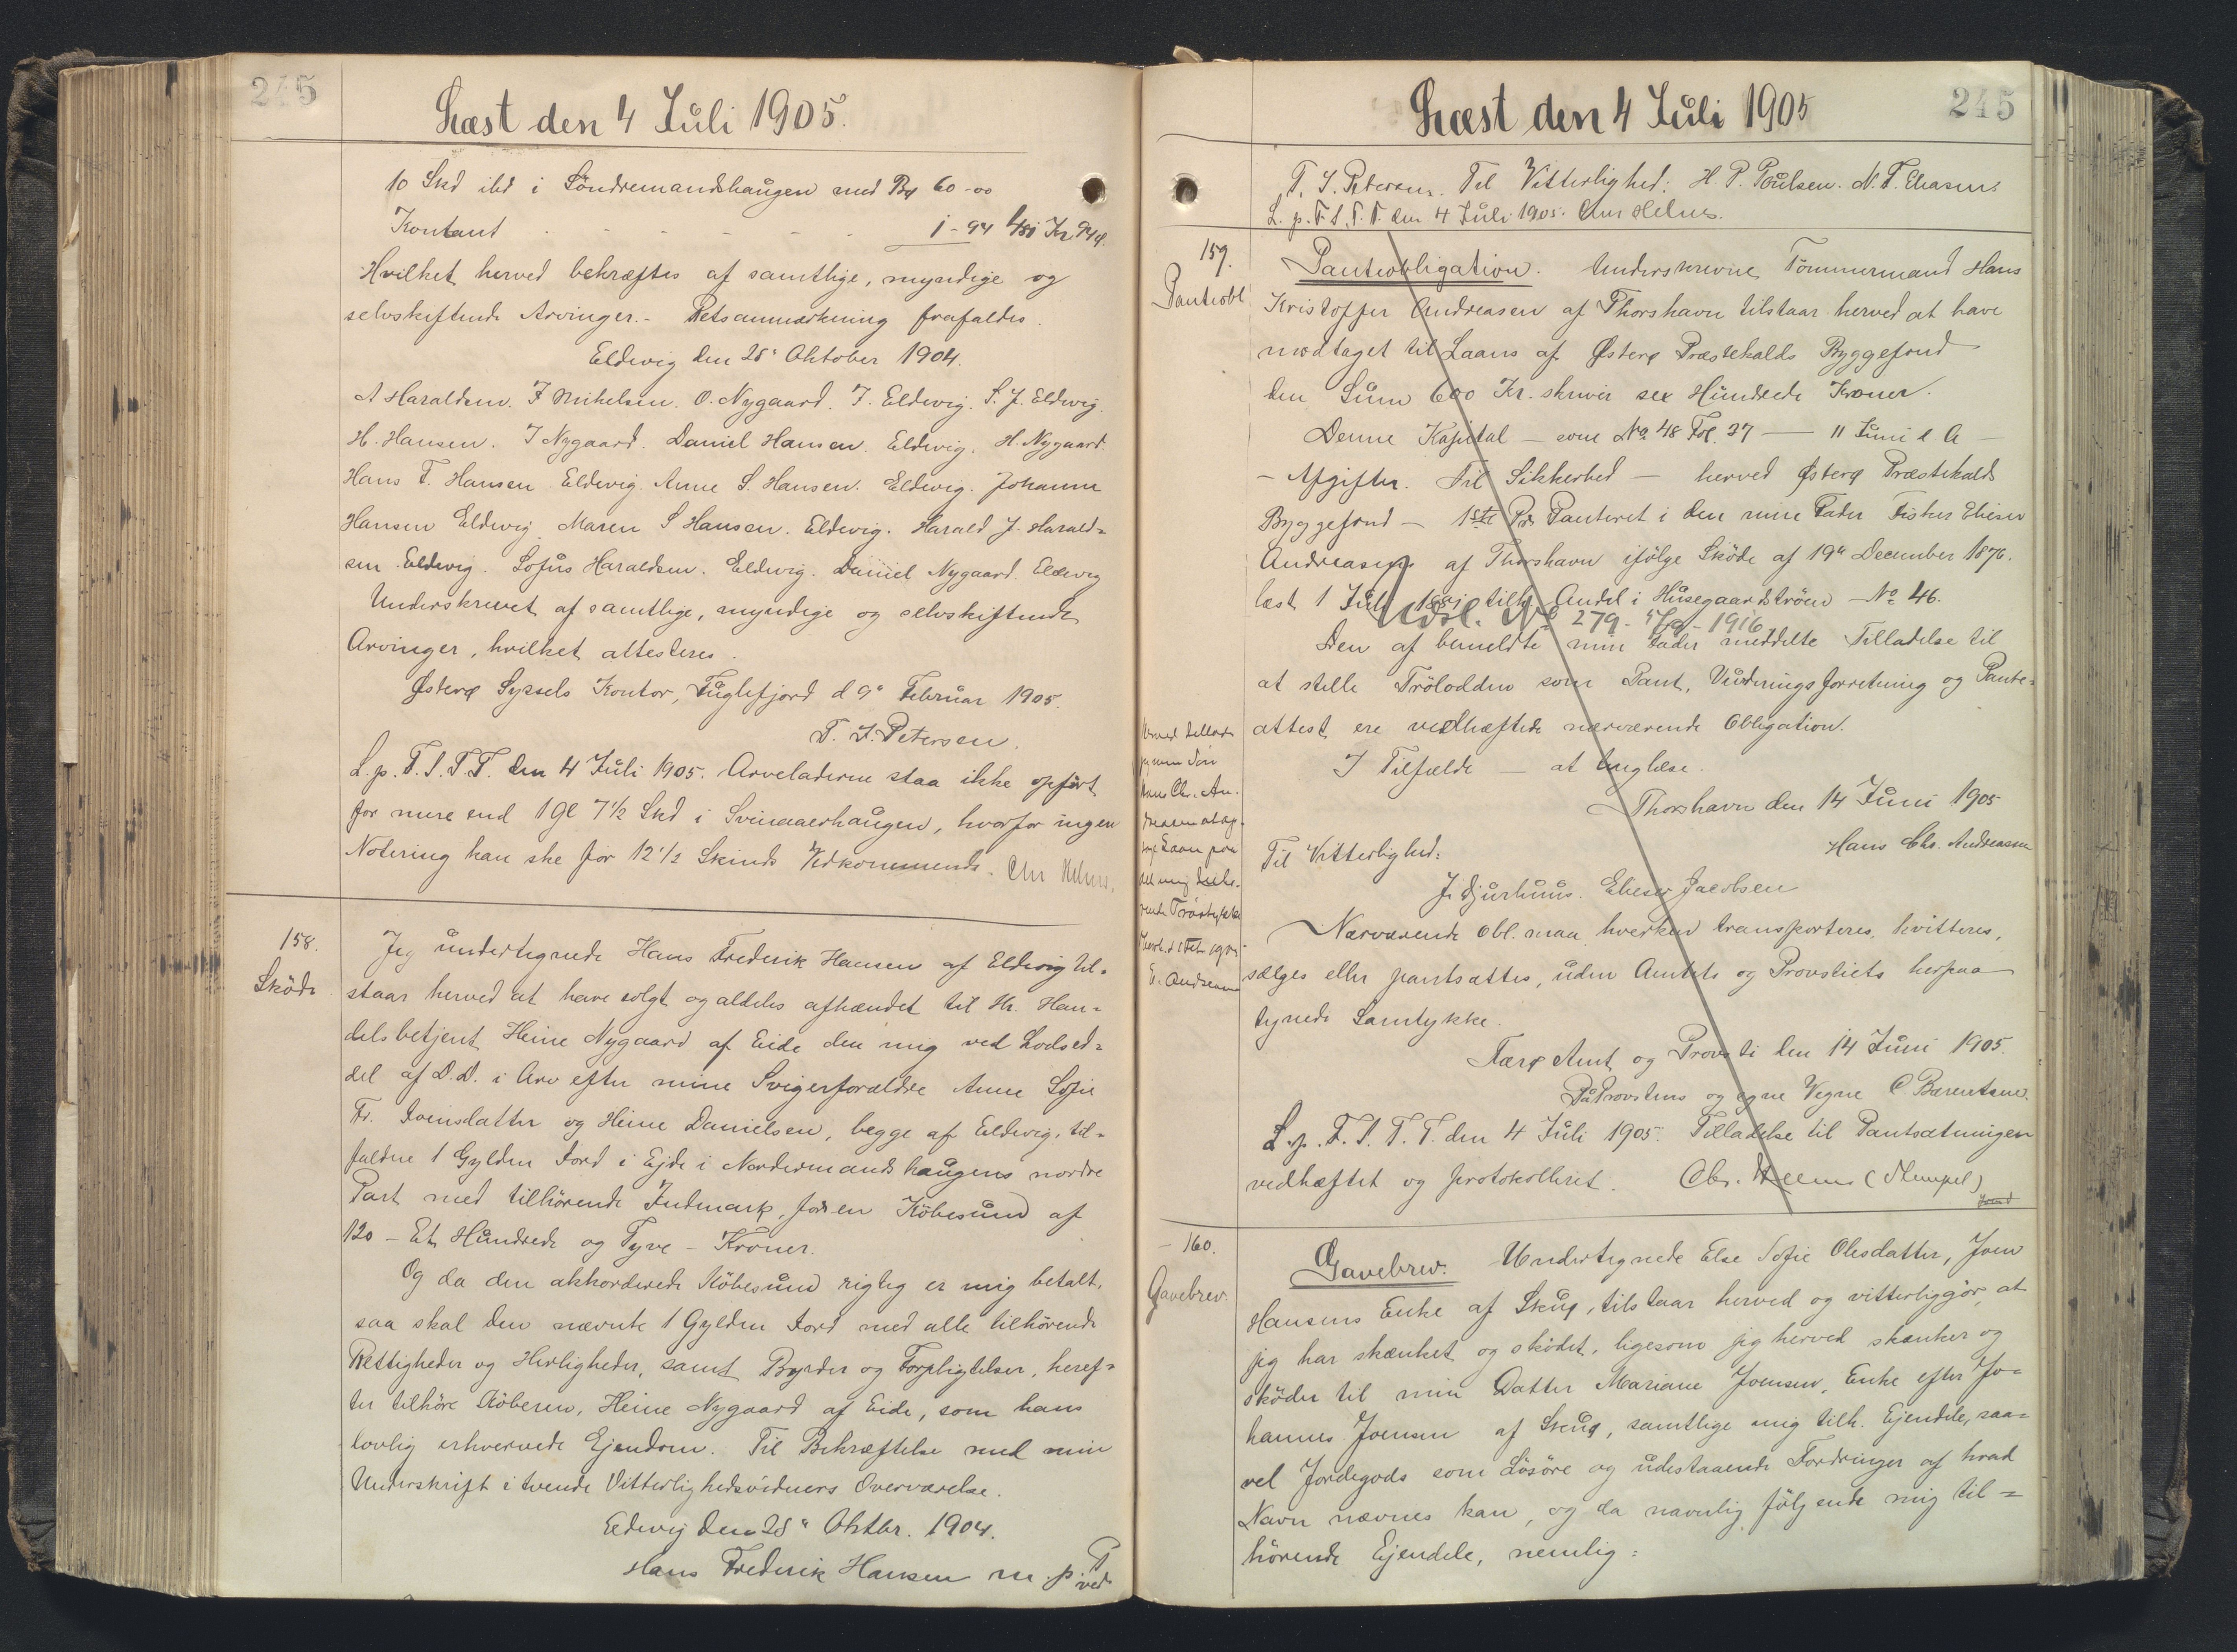 245
Læst den 4 Juli 1905.
10 Skd ibd i Söndremandshaugen med By 60-00
Kontant 1-94 481 Kr 94 Ø.
Hvilket herved bekræftes af samtlige, myndige og
selvskiftende Arvinger. - Retsanmærkning frafaldes.
Eldevig den 28' Oktober 1904.
A Haraldsen. J Mikelsen. O. Nygaard. J. Eldevig. S. J. Eldevig.
H. Hansen. J Nygaard. Daniel Hansen. Eldevig. H. Nygaard.
Hans F. Hansen Eldevig. Anne S. Hansen. Eldevig. Johanne
Hansen Eldevig. Maren S Hansen. Eldevig. Harald J. Harald=
sen. Eldevig. Sofus Haraldsen. Eldevig. Daniel Nygaard. Eldevig
Underskrevet af samtlige, myndige og selvskiftende
Arvinger, hvilket attesteres.
Østerø Syssels Kontor, Fuglefjord d 9' Februar 1905.
T. J. Petersen.
L. p. F. S. T. T. den 4 Juli 1905. Arveladerne staa ikke opført
for mere end 1 Gl 7½ Skd i Svinaaerhaugen, hvorfor ingen
Notering kan ske for 12½ Skinds Vedkommende. Chr Helms.
158.
Sköde
Jeg undertegnede Hans Frederik Hansen af Eldevig til=
staar herved at have solgt og aldeles afhændet til Hr. Han=
delsbetjent Heine Nygaard af Eide den mig ved Lodsed=
del af D.D. i Arv efter mine Svigerforældre Anne Sofie
Fr. Joensdatter og Heine Danielsen, begge af Eldevig, til=
faldne 1 Gylden Jord i Ejde i Nordremandshaugens nordre
Part med tilhörende Indmark, for en Köbesum af
120 - Et Hundrede og Tyve - Kroner.
Og da den akkorderede Köbesum rigtig er mig betalt,
saa skal den nævnte 1 Gylden Jord med alle tilhörende
Rettigheder og Herligheder, samt Byrder og Forpligtelser, heref=
ter tilhöre Köberen, Heine Nygaard af Eide, som hans
lovlig erhvervede Ejendom. Til Bekræftelse med min
Underskrift i tvende Vitterlighedsvidners Overværelse.
Eldevig den 28' Oktbr. 1904.
Hans Frederik Hansen m. p. P
ved
Læst den 4 Juli 1905
245
T. J. Petersen. Til Vitterlighed: H. P. Poulsen. N. F. Eliasen.
L. p. F. S. T. T. den 4 Juli 1905. Chr Helms.
159.
Panteobl
Panteobligation. Underskrevne Tömmermand Hans
Kristoffer Andreasen af Thorshavn tilstaar herved at have
modtaget til Laans af Østerø Præstekalds Byggefond
den Sum 600 Kr. skriver sex Hundrede Kroner.
Denne Kapital - som No 48 Fol. 37 - 11 Juni d A -
- Afgifter. Til Sikkerhed - herved Østerø Præstekalds
Byggefond - 1ste Pr. Panteret i den min Fader Fisker Elieser
Andreasen af Thorshavn ifölge Sköde af 19' December 1876.
læst 1 Juli 1881 tilh. Andel i Husegaardströen - No 46.
Udsl. No 279 - 1916
Den af bemeldte min Fader meddelte Tilladelse til
at stille Trölodden som Pant, Vurderingsforretning og Pante=
attest ere vedhæftede nærværende Obligation.
I Tilfælde - at tinglæse.
Thorshavn den 14 Juni 1905
Hans Chr. Andreasen
Til Vitterlighed:
J. Djurhuus. Elieser Jacobsen
Nærværende Obl. maa hverken transporteres, kvitteres,
sælges eller pantsættes, uden Amtets og Provstiets herpaa
tegnede Samtykke.
Færø Amt og Provsti den 14 Juni 1905.
Paa Provstens og egne Vegne C. Bærentsen.
L. p. F. S. T. T. den 4 Juli 1905. Tilladelse til Pantsætningen
vedhæftet og protokolleret. Chr. Helms (Stempel)
Herved tillader
jeg min Sön
Hans Chr. An.
dreasen at op-
tage Laan paa
det mig tilhö-
rende Tröstykke
Thorsh. d 1 1905
E. Andreasen
160.
Gavebrev.
Gavebrev. Undertegnede Else Sofie Olesdatter, Joen
Hansens Enke af Skuø, tilstaar herved og vitterliggör, at
jeg har skænket og sködet, ligesom jeg herved skænker og
sköder til min Datter Mariane Joensen, Enke efter Jo=
hannes Joensen af Skuø, samtlige mig tilh. Ejendele, saa=
vel Jordegods som Lösöre og udestaaende Fordringer af hvad
Navn nævnes kan, og da navnlig fölgende mig til=
hörende Ejendele, nemlig: